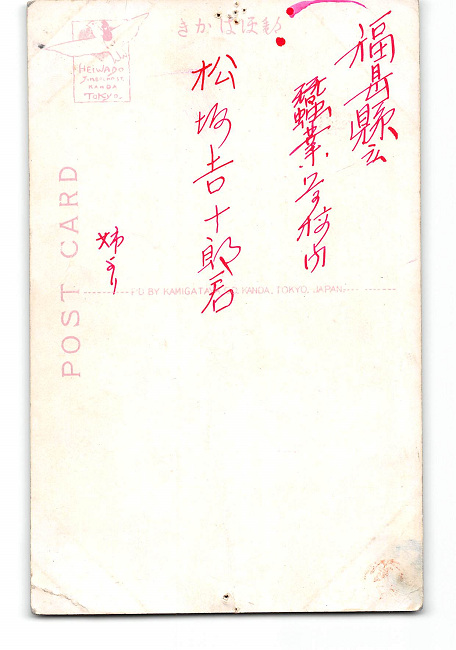 きかはほ便郵
HEIWADO
KANDA
TOKYO.
POST CARD
福島縣立
蚕業学校内
松坂吉十郎君
姉より
D BY KAMIGATA
KANDA, TOKYO, JAPAN.